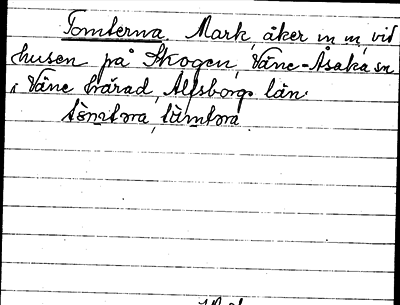 Tomterna. Mark, åker m m, vid
husen på Skogen, Väne-Åsaka sn
i Väne härad, Älfsborgs län.
tòmtɔra, tæ̀mtɔra